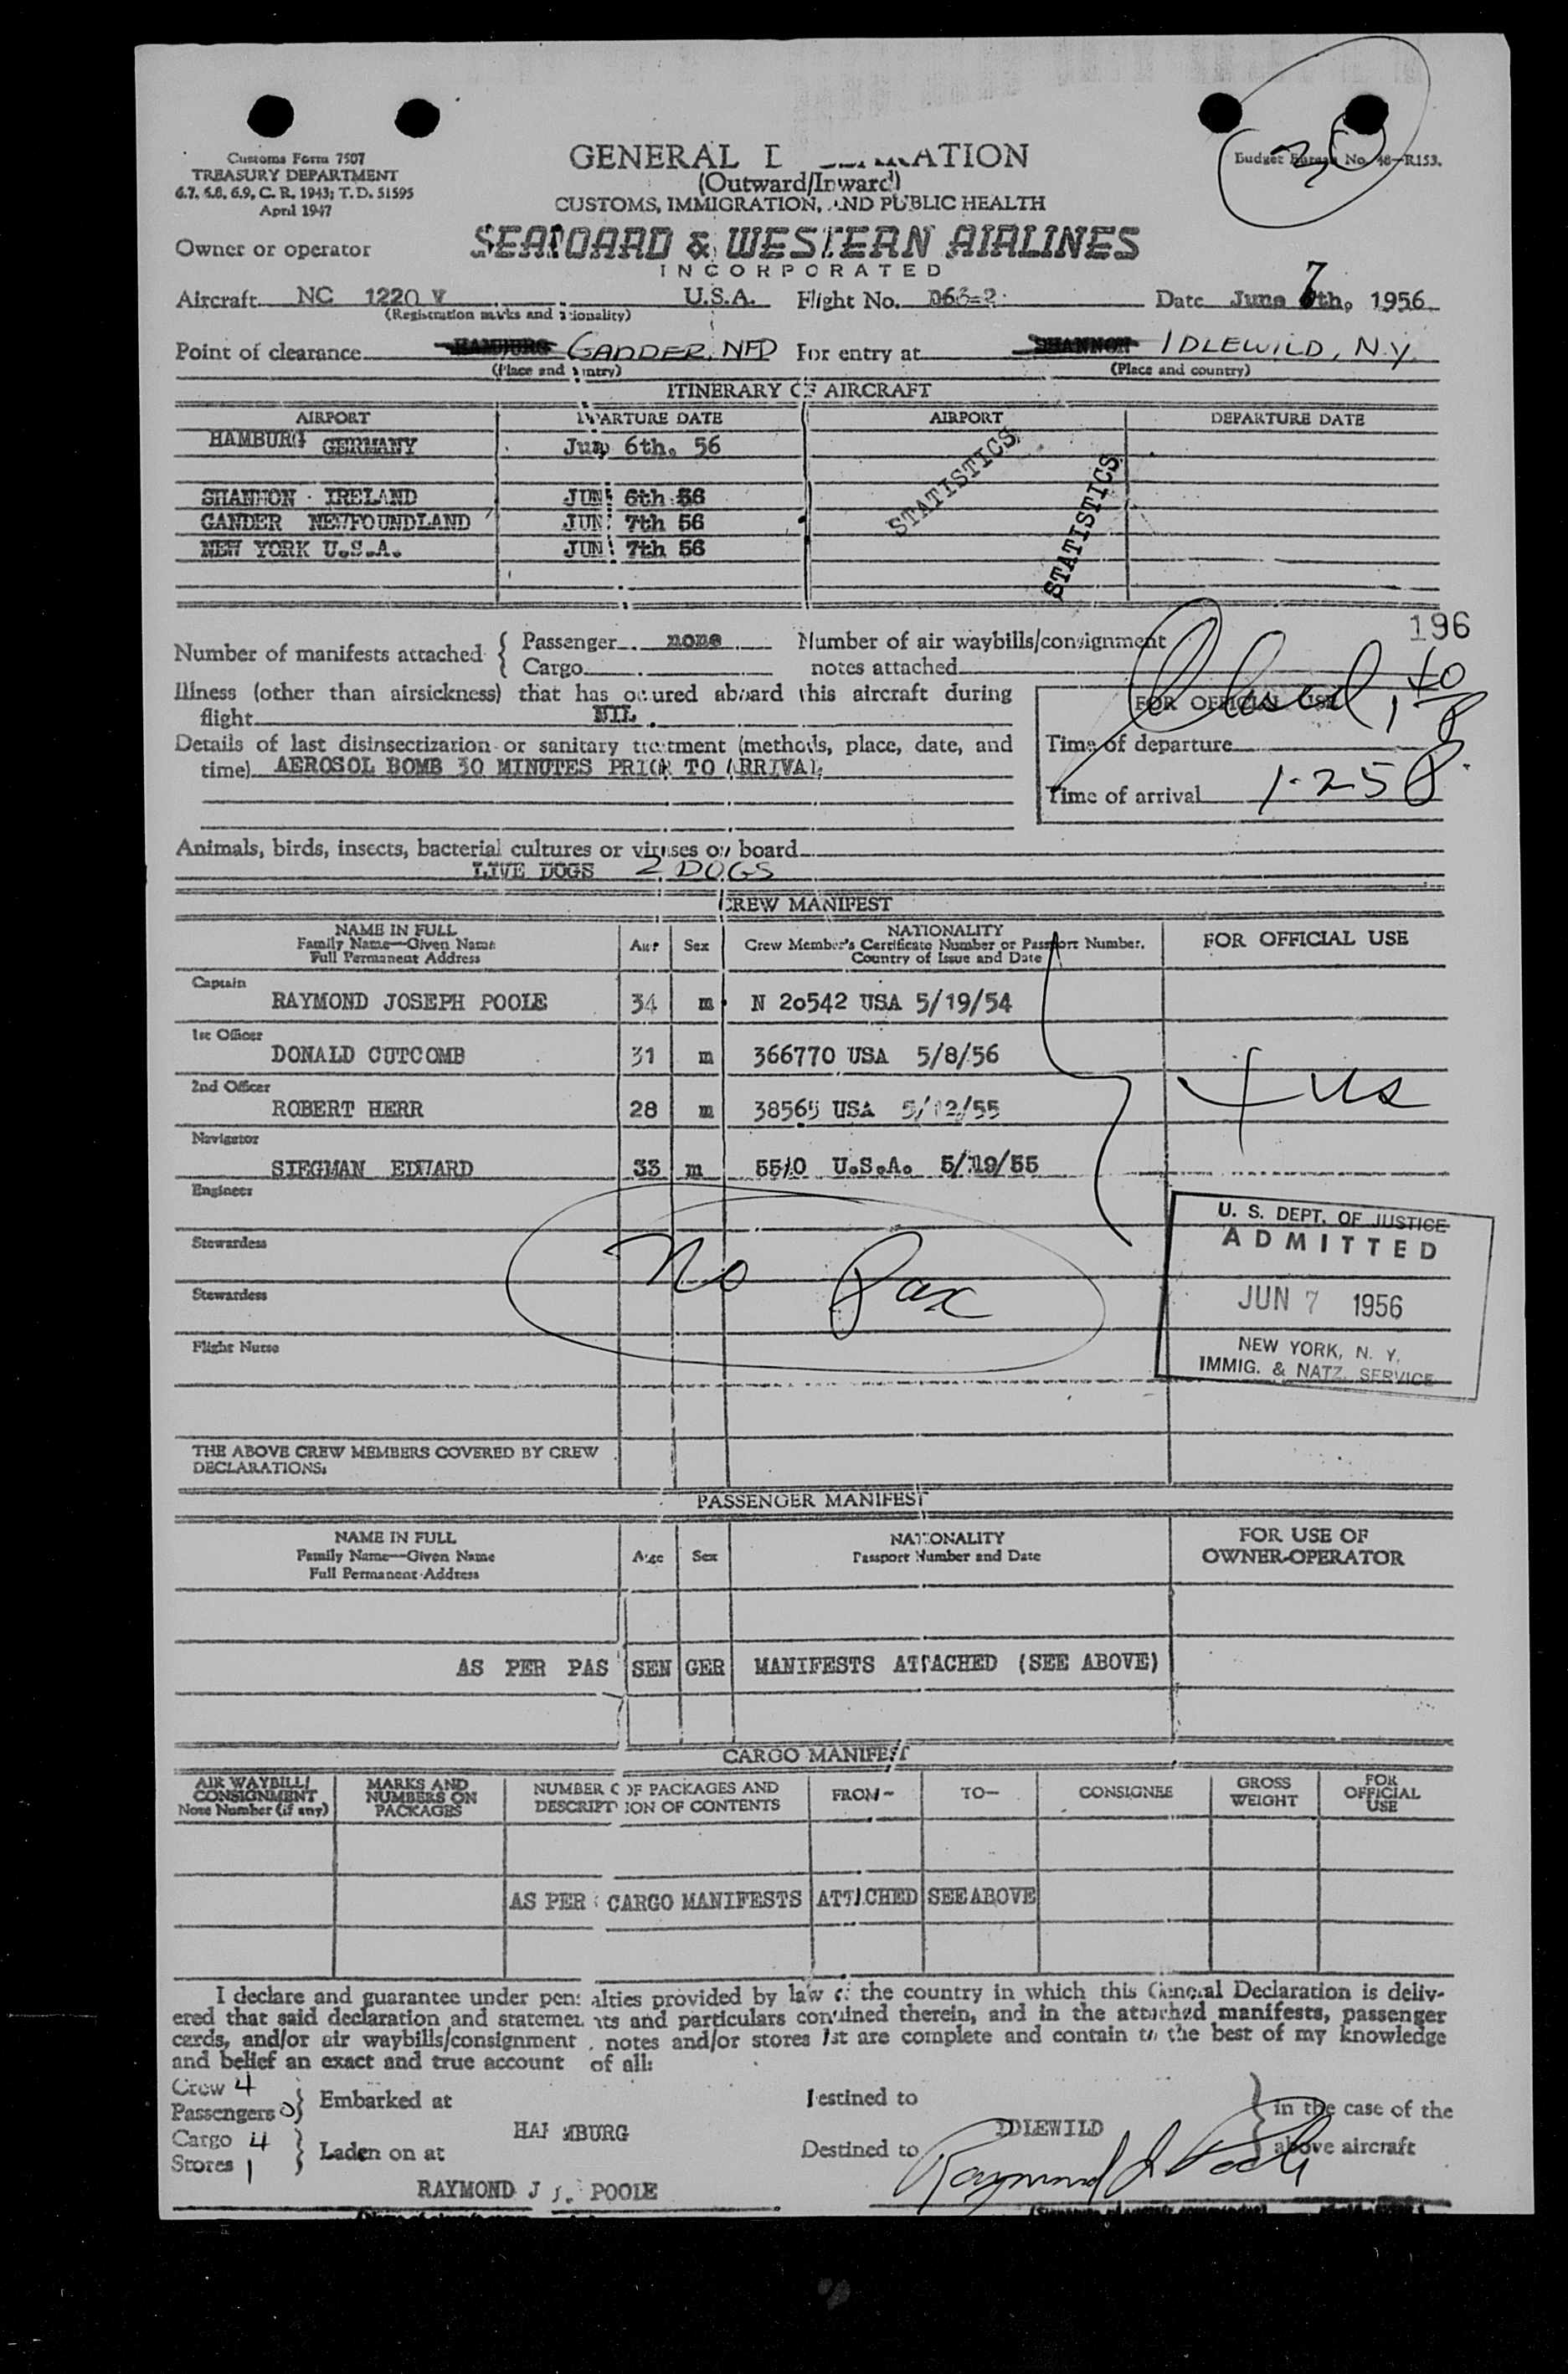 Customs Form 7507
TREASURY DEPARTMENT
6.7, 6.8, 6.9, C. R. 1943; T. D. 51595
April 1947
Budget Bureau No. 48-R153.
GENERAL DECLARATION
(Outward/Inward)
CUSTOMS, IMMIGRATION, AND PUBLIC HEALTH
Owner or operator SEABOARD & WESTERN AIRLINES
INCORPORATED
Aircraft NC 1220 V U.S.A. Flight No. D66-2 Date June 7th, 1956
(Registration marks and nationality)
Point of clearance HAMBURG GANDER, NFD For entry at SHANNON IDLEWILD, N.Y.
(Place and country) (Place and country)
ITINERARY OF AIRCRAFT
AIRPORT DEPARTURE DATE AIRPORT DEPARTURE DATE
HAMBURG GERMANY Jun 6th. 56
STATISTICS STATISTICS
SHANNON IRELAND JUN 6th 56
GANDER NEWFOUNDLAND JUN 7th 56
NEW YORK U.S.A. JUN 7th 56
196
Number of manifests attached { Passenger none Number of air waybills/consignment
Cargo notes attached
Illness (other than airsickness) that has occured aboard this aircraft during
flight NIL.
FOR OFFICIAL USE
Details of last disinsectization or sanitary treatment (methods, place, date, and
time) AEROSOL BOMB 30 MINUTES PRIOR TO ARRIVAL
Time of departure
Time of arrival 1-25 P.
Animals, birds, insects, bacterial cultures or viruses on board
LIVE DOGS 2 DOGS
CREW MANIFEST
NAME IN FULL
Family Name—Given Name
Full Permanent Address
Age Sex
NATIONALITY
Crew Member's Certificate Number or Passport Number.
Country of Issue and Date
FOR OFFICIAL USE
Captain
RAYMOND JOSEPH POOLE 34 m N 20542 USA 5/19/54
1st Officer
DONALD CUTCOMB 31 m 366770 USA 5/8/56
2nd Officer
ROBERT HERR 28 m 38565 USA 5/12/55
us
Navigator
SIEGMAN EDWARD 33 m U.S.A. 5/19/55
Engineer
Stewardess
No Pax
Stewardess
Flight Nurse
U. S. DEPT. OF JUSTICE
ADMITTED
JUN 7 1956
NEW YORK, N. Y.
IMMIG. & NATZ. SERVICE
THE ABOVE CREW MEMBERS COVERED BY CREW
DECLARATIONS:
PASSENGER MANIFEST
NAME IN FULL
Family Name—Given Name
Full Permanent Address
Age Sex
NATIONALITY
Passport Number and Date
FOR USE OF
OWNER-OPERATOR
AS PER PAS SEN GER MANIFESTS ATTACHED (SEE ABOVE)
CARGO MANIFEST
AIR WAYBILL/
CONSIGNMENT
Note Number (if any)
MARKS AND
NUMBERS ON
PACKAGES
NUMBER OF PACKAGES AND
DESCRIPTION OF CONTENTS
FROM— TO— CONSIGNEE
GROSS
WEIGHT
FOR
OFFICIAL
USE
AS PER CARGO MANIFESTS ATTACHED SEE ABOVE
I declare and guarantee under penalties provided by law of the country in which this General Declaration is deliv-
ered that said declaration and statements and particulars contained therein, and in the attached manifests, passenger
cards, and/or air waybills/consignment notes and/or stores list are complete and contain to the best of my knowledge
and belief an exact and true account of all:
Crew 4
Passengers 0 } Embarked at Destined to } in the case of the
HAMBURG IDLEWILD
Cargo 4
Stores 1 } Laden on at Destined to above aircraft
RAYMOND J. POOLE Raymond J Poole